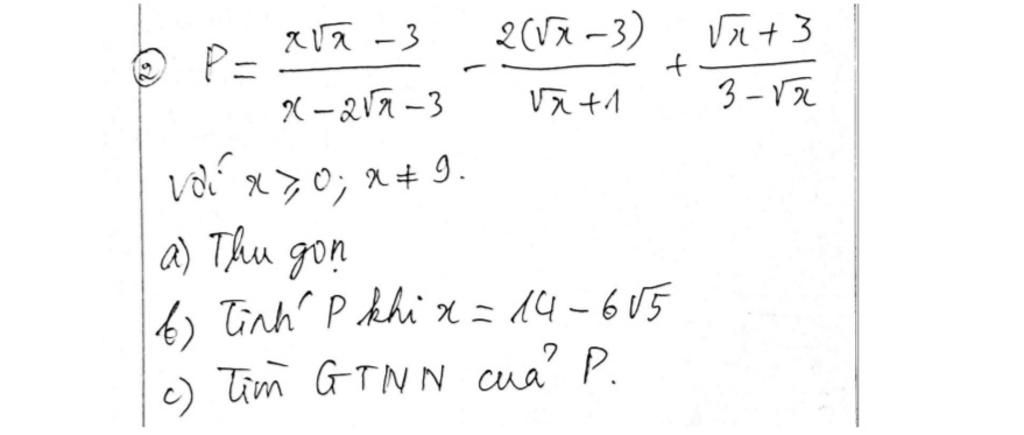 ② P = (x√x - 3)/(x - 2√x - 3) - 2(√x - 3)/(√x + 1) + (√x + 3)/(3 - √x)
với x ≥ 0; x ≠ 9.
a) Thu gọn
b) Tính P khi x = 14 - 6√5
c) Tìm GTNN của P.